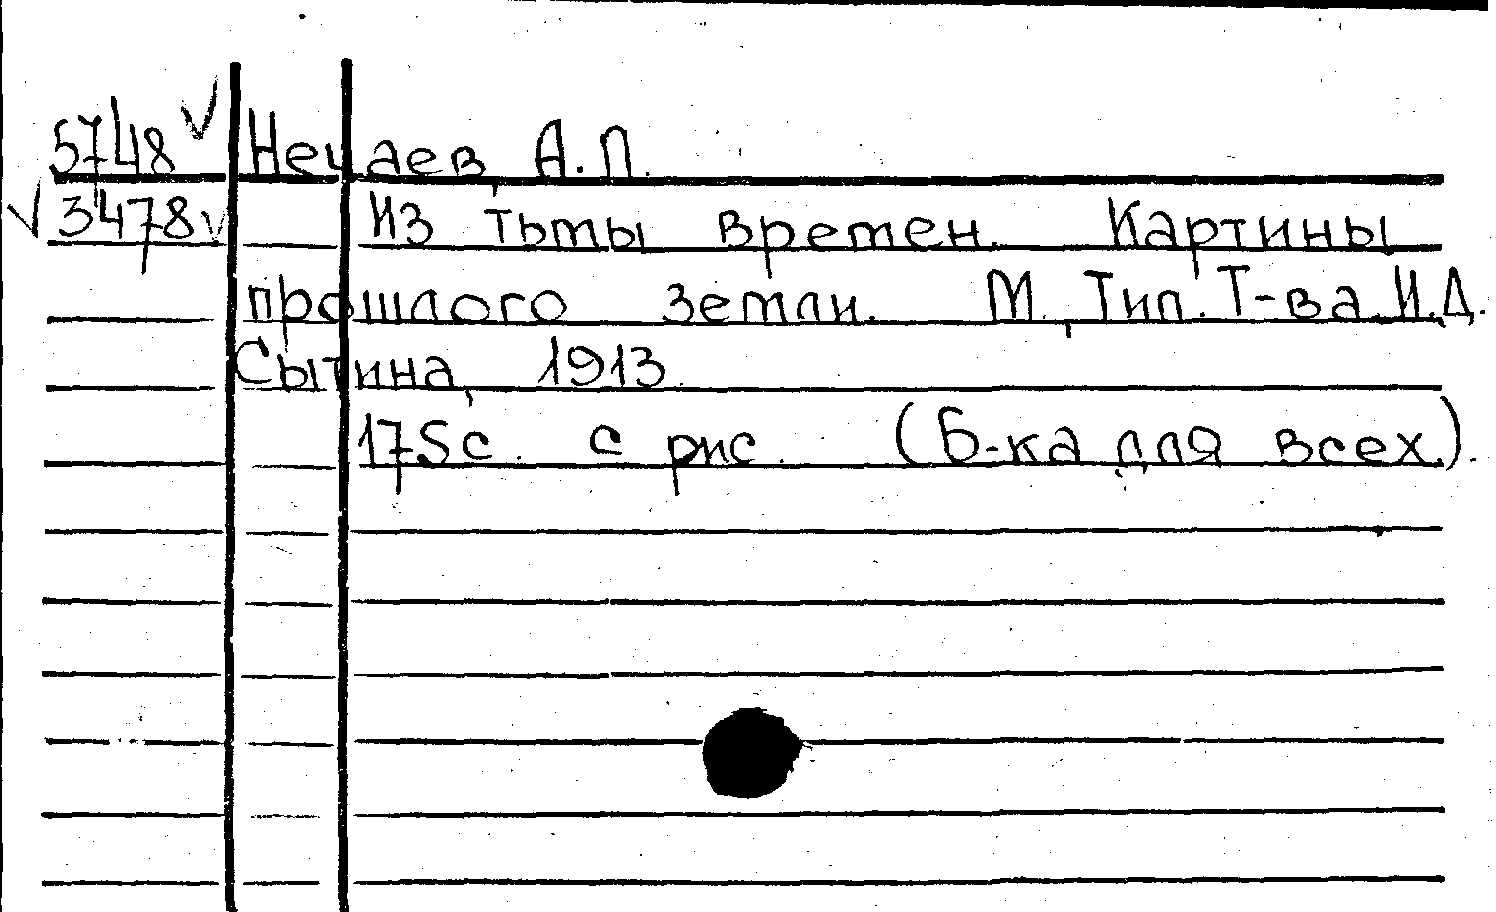 5748 √ Нечаев, А.П.
√ 3478 √ Из тьмы времен. Картины
прошлого земли. М., Тип. Т-ва И.Д.
Сытина, 1913.
175 с. с рис. (Б-ка для всех).